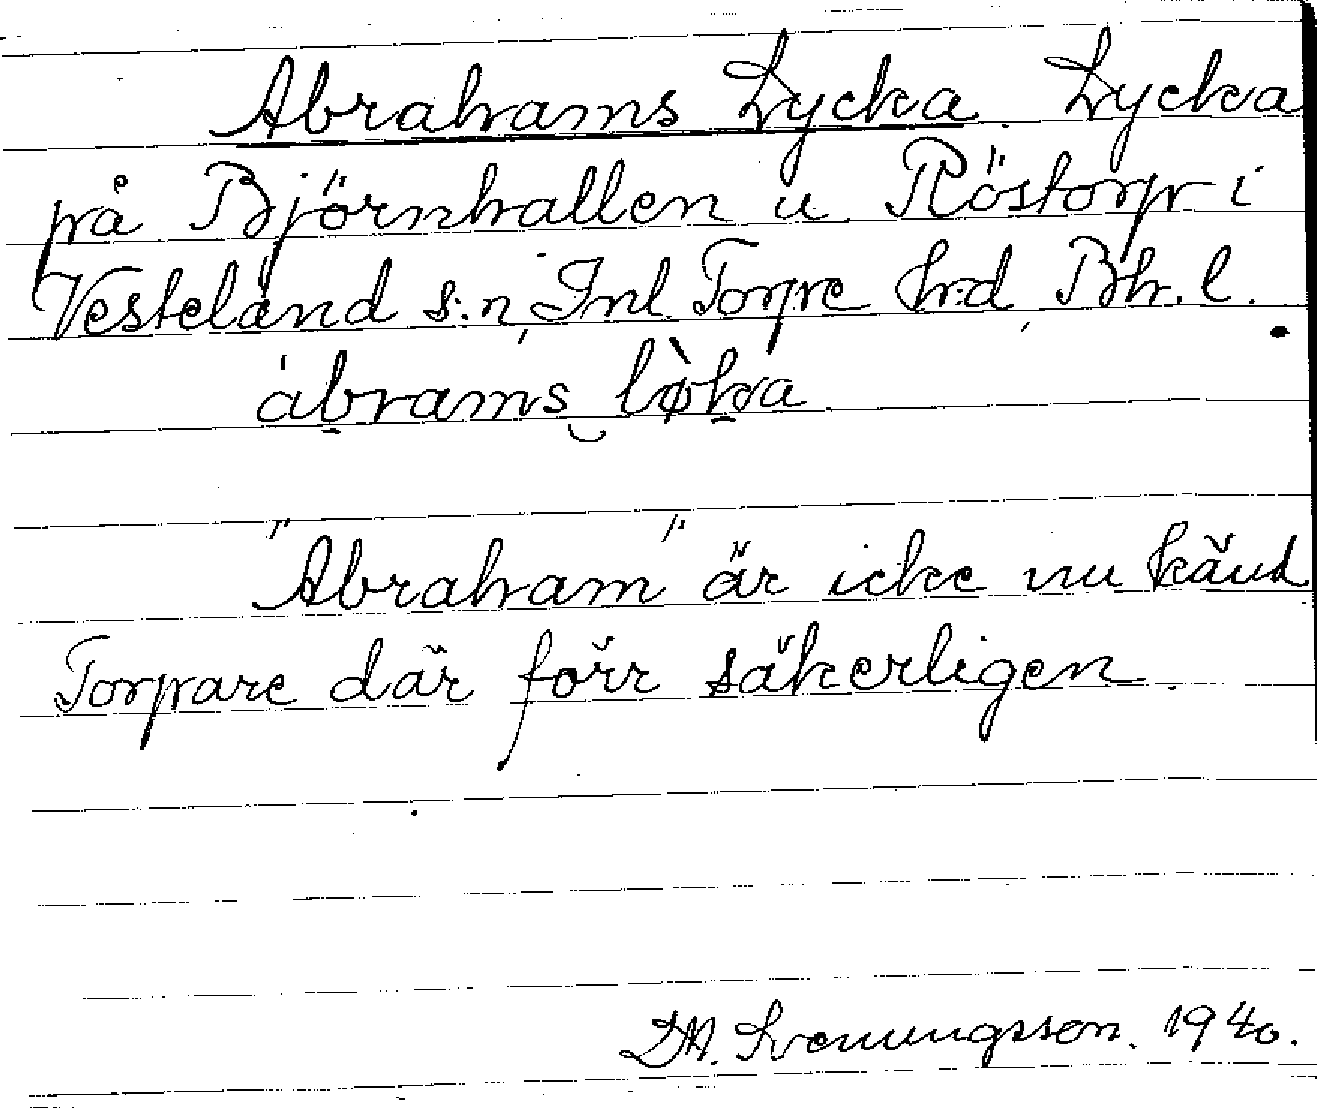 Abrahams Lycka. Lycka
på Björnhallen u Röstorp i
Vesteland s:n, Inl. Torpe h:d, Bh. l.
ábrams lø̀ka
"Abraham" är icke nu känd
Torpare där förr säkerligen.
1940.